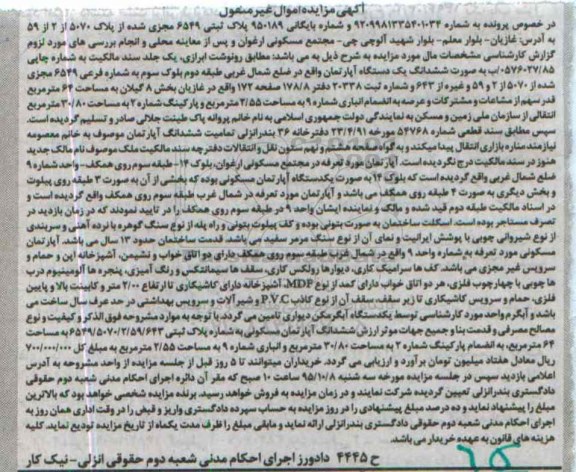 آگهی مزایده اموال غیرمنقول
در خصوص پرونده به شماره ۹۲۰۹۹۸۱۳۳۵۴۰۱۰۳۴ و شماره بایگانی ۹۵۰۱۸۹ پلاک ثبتی ۶۵۴۹ مجزی شده از پلاک ۵۰۷۰ از ۲ از ۵۹
به آدرس: غازیان- بلوار معلم- بلوار شهید آلوچی چی- مجتمع مسکونی ارغوان و پس از معاینه محلی و انجام بررسی های مورد لزوم
گزارش کارشناسی مشخصات مال مورد مزایده به شرح ذیل به می باشد: مطابق رونوشت ابرازی، یک جلد سند مالکیت به شماره چاپی
۰۵۷۶۰۲۷/۸۵ب به صورت ششدانگ یک دستگاه آپارتمان واقع در ضلع شمال غربی طبقه دوم بلوک سوم به شماره فرعی ۶۵۴۹ مجزی
شده از ۵۰۷۰ از ۲ و ۵۹ و غیره از ۶۴۳ و شماره ثبت ۲۰۳۳۸ دفتر ۱۷۸/۸ صفحه ۱۷۲ واقع در غازیان بخش ۸ گیلان به مساحت ۶۴ مترمربع
قدر سهم از مشاعات و مشترکات و عرصه به انضمام انباری شماره ۹ به مساحت ۲/۵۵ مترمربع و پارکینگ شماره ۲ به مساحت ۳۰/۸۰ مترمربع
انتقالی از سازمان ملی زمین و مسکن به نمایندگی دولت جمهوری اسلامی به نام خانم پروانه پاک طینت جلالی صادر و تسلیم گردیده است.
سپس مطابق سند قطعی شماره ۵۴۷۶۸ مورخه ۲۳/۴/۹۱ دفترخانه ۳۶ بندرانزلی تمامیت ششدانگ آپارتمان موصوف به خانم معصومه
نیازمند مناره بازاری انتقال پیدا میکند و به گواه صفحه هشتم و نهم ستون نقل و انتقالات دفترچه سند مالکیت ملک موصوف نام مالک جدید
هنوز در سند مالکیت درج نگردیده است. آپارتمان مورد تعرفه در مجتمع مسکونی ارغوان، بلوک ۱۴- طبقه سوم روی همکف- واحد شماره ۹
ضلع شمال غربی واقع گردیده است که بلوک ۱۴ به صورت یکدستگاه آپارتمان مسکونی بوده که بخشی از آن به صورت ۳ طبقه روی پیلوت
و بخش دیگری به صورت ۴ طبقه روی همکف می باشد و آپارتمان مورد تعرفه در شمال غرب طبقه سوم روی همکف واقع گردیده است و
در اسناد مالکیت طبقه دوم قید شده و مالک و نماینده ایشان واحد ۹ در طبقه سوم روی همکف را در تایید نمودند که در زمان بازدید در
تصرف مستاجر بوده است. اسکلت ساختمان به صورت بتونی بوده و کف پیلوت بتونی و راه پله از نوع سنگ گوهره با نرده آهنی و سربندی
از نوع شیروانی چوبی با پوشش ایرانیت و نمای آن از نوع سنگ مرمر سفید می باشد. قدمت ساختمان حدود ۱۳ سال می باشد. آپارتمان
مسکونی مورد تعرفه به شماره واحد ۹ واقع در شمال غرب طبقه سوم روی همکف دارای دو اتاق خواب و نشیمن، آشپزخانه اپن و حمام و
سرویس غیر مجزی می باشد. کف ها سرامیک کاری، دیوارها رولکس کاری، سقف ها سیمانتکس و رنگ آمیزی، پنجره ها آلومینیوم درب
ها چوبی با چهارچوب فلزی، هر دو اتاق خواب دارای کمد از نوع MDF، آشپزخانه دارای کاشیکاری تا ارتفاع ۲/۰۰ متر و کابینت بالا و پایین
فلزی، حمام و سرویس کاشیکاری تا زیر سقف، سقف آن از نوع کاذب P.V.C و شیرآلات و سرویس بهداشتی در حد عرف سال ساخت می
باشد و آبگرم واحد مورد کارشناسی توسط یکدستگاه آبگرمکن دیواری تامین می گردد. با توجه به موارد مشروحه فوق الذکر و کیفیت و نوع
مصالح مصرفی و قدمت بنا و جمیع جهات موثر ارزش ششدانگ آپارتمان مسکونی به شماره پلاک ثبتی ۶۵۴۹/۵۰۷۰/۲/۵۹/۶۴۳ به مساحت
۶۴ مترمربع، به انضمام پارکینگ شماره ۲ به مساحت ۳۰/۸۰ مترمربع و انباری شماره ۹ به مساحت ۲/۵۵ مترمربع به مبلغ کل ۷۰۰/۰۰۰/۰۰۰
ریال معادل هفتاد میلیون تومان برآورد و ارزیابی می گردد. خریداران میتوانند تا ۵ روز قبل از جلسه مزایده از واحد مشروحه به آدرس
اعلامی بازدید سپس در جلسه مزایده مورخه سه شنبه ۹۵/۱۰/۸ ساعت ۱۰ صبح که مقر آن دائره اجرای احکام مدنی شعبه دوم حقوقی
دادگستری بندرانزلی تعیین گردیده شرکت نمایند و در زمان مزایده به فروش خواهد رسید. برنده مزایده شخصی خواهد بود که بالاترین
مبلغ را پیشنهاد نماید و ده درصد مبلغ پیشنهادی را در روز مزایده به حساب سپرده دادگستری واریز و فیض را در وقت اداری همان روز به
اجرای احکام مدنی شعبه دوم حقوقی دادگستری بندرانزلی ارائه نماید و مابقی مبلغ را ظرف مدت یکماه از تاریخ مزایده تودیع نماید. کلیه
هزینه های قانون به عهده خریدار می باشد.
ح ۴۴۴۵ دادورز اجرای احکام مدنی شعبه دوم حقوقی انزلی- نیک کار